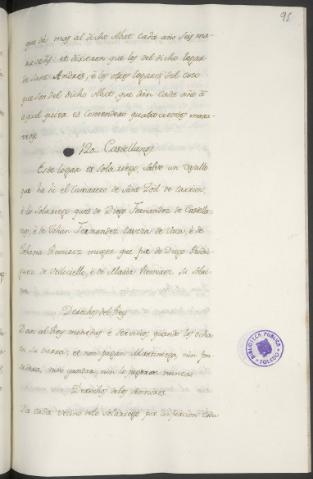 91
que dé mas al dicho Abat cada año seis ma-
ravedis. et dixeron que los del dicho logar
de Sant Andres, è los otros logares del coto
que son del dicho Abat, que dan cada año à
aquel quatrocientos mara-
vedis.
Rio Castellanos
Este logar es solariego, salvo un
que ha de el Camarero de Sant Zoil de Carrion,
è lo solariego que es de Diego Fernandez de Castella-
no, è de Johan Fernandez è de
Johana Ramirez muger que fue de Diego Rodri-
guez è de Maria Ramirez. Su
Derechos del Rey
Dan al Rey monedas è servicios, quando los echa
en su tierra, et non pagan Martiniega, nin fon-
sadera, nin yantar, nin le pagaron nunca.
Derechos de los Señores
Da cada vecino de lo solariego por Infurcion cada
BIBLIOTECA PUBLICA
TOLEDO